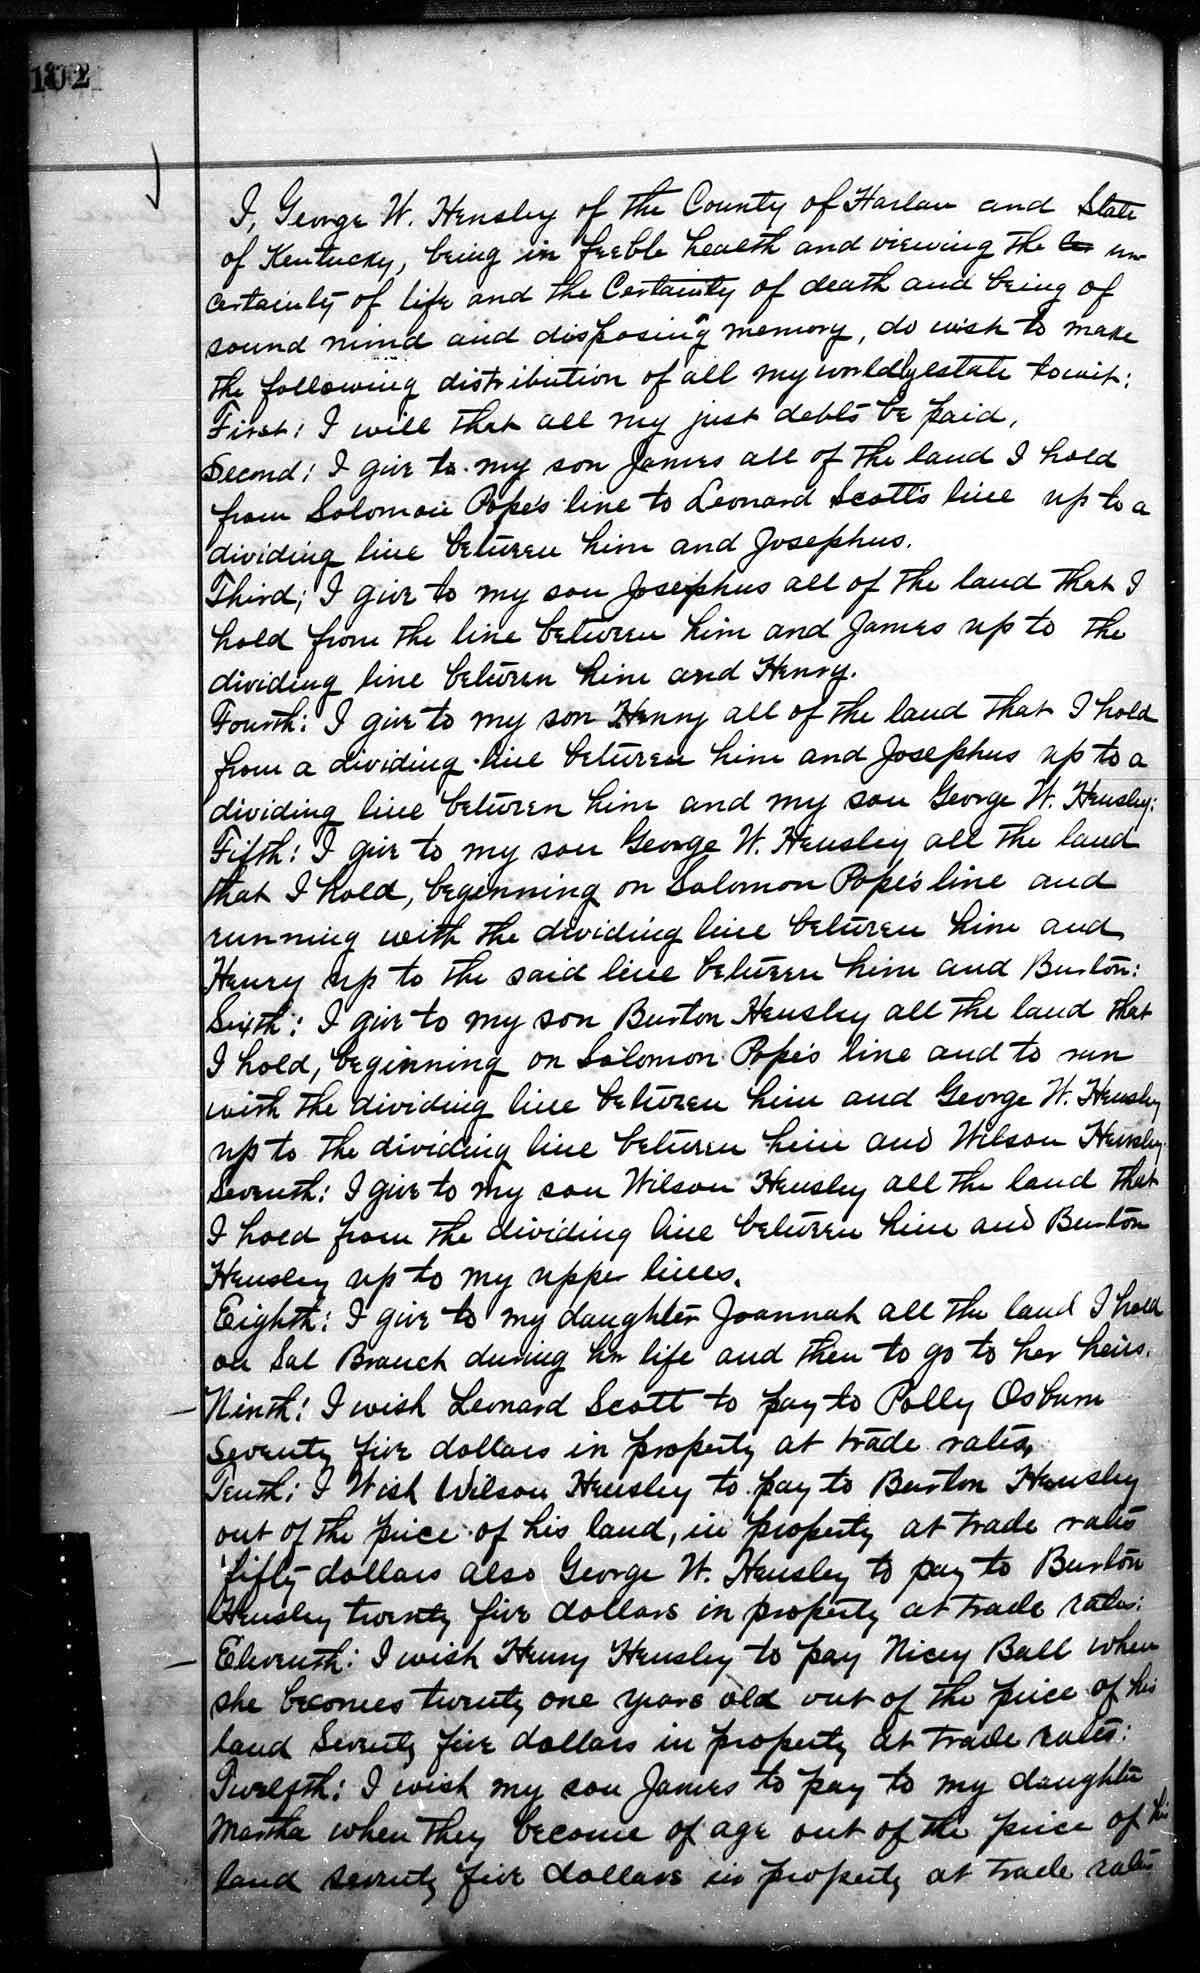 102
I, George W. Hensley of the County of Harlan and State
of Kentucky, being in feeble health and viewing the un-
certainty of life and the Certainty of death and being of
sound mind and disposing memory, do wish to make
the following distribution of all my worldly estate towit:
First: I will that all my just debts be paid,
Second: I give to my son James all of the land I hold
from Solomon Pope's line to Leonard Scott's line up to a
dividing line between him and Josephus.
Third; I give to my son Josephus all of the land that I
hold from the line between him and James up to the
dividing line between him and Henry.
Fourth: I give to my son Henry all of the land that I hold
from a dividing line between him and Josephus up to a
dividing line between him and my son George W. Hensley:
Fifth: I give to my son George W. Hensley all the land
that I hold, beginning on Solomon Pope's line and
running with the dividing line between him and
Henry up to the said line between him and Burton:
Sixth: I give to my son Burton Hensley all the land that
I hold, beginning on Solomon Pope's line and to run
with the dividing line between him and George W. Hensley
up to the dividing line between him and Wilson Hensley.
Seventh: I give to my son Wilson Hensley all the land that
I hold from the dividing line between him and Burton
Hensley up to my upper lines.
Eighth: I give to my daughter Joannah all the land I hold
on Sal Branch during her life and then to go to her heirs.
Ninth: I wish Leonard Scott to pay to Polly Osburn
Seventy five dollars in property at trade rates,
Tenth: I Wish Wilson Hensley to pay to Burton Hensley
out of the price of his land, in property at trade rates
fifty dollars also George W. Hensley to pay to Burton
Hensley twenty five dollars in property at trade rates:
Eleventh: I wish Henry Hensley to pay Nicey Ball when
she becomes twenty one years old out of the price of his
land Seventy five dollars in property at trade rates:
Twelfth: I wish my son James to pay to my daughter
Martha when they become of age out of the price of his
land seventy five dollars in property at trade rates